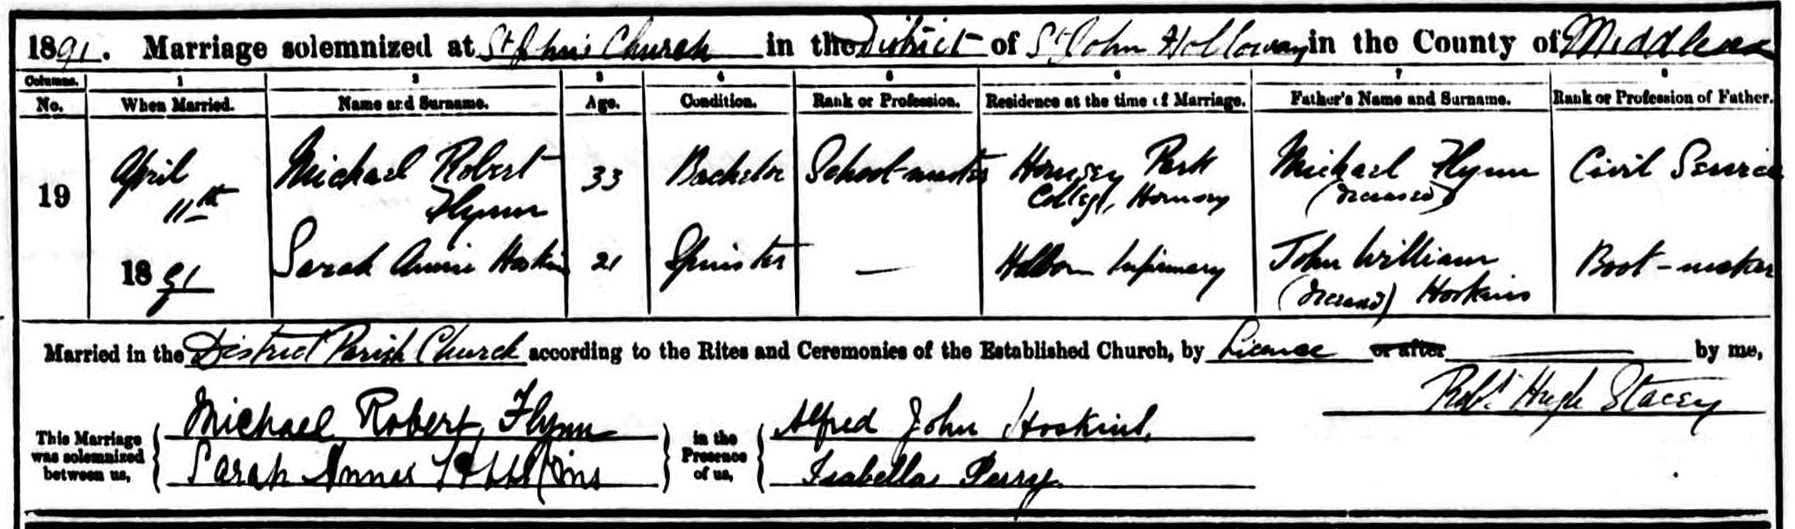 1891. Marriage solemnized at St John's Church in the District of St John Holloway in the County of Middlesex
Columns. 1 2 3 4 5 6 7 8
No. When Married. Name and Surname. Age. Condition. Rank or Profession. Residence at the time of Marriage. Father's Name and Surname. Rank or Profession of Father.
19 April 11th 1891
Michael Robert Flynn 33 Bachelor School-master Hornsey Park College, Hornsey Michael Flynn (deceased) Civil Service
Sarah Annie Hoskins 21 Spinster — Holborn Infirmary John William Hoskins (deceased) Boot-maker
Married in the District Parish Church according to the Rites and Ceremonies of the Established Church, by Licence or after — by me,
Robt. Hugh Stacey
This Marriage was solemnized between us, Michael Robert Flynn
Sarah Hoskins
in the Presence of us, Alfred John Hoskins.
Isabella Perry.